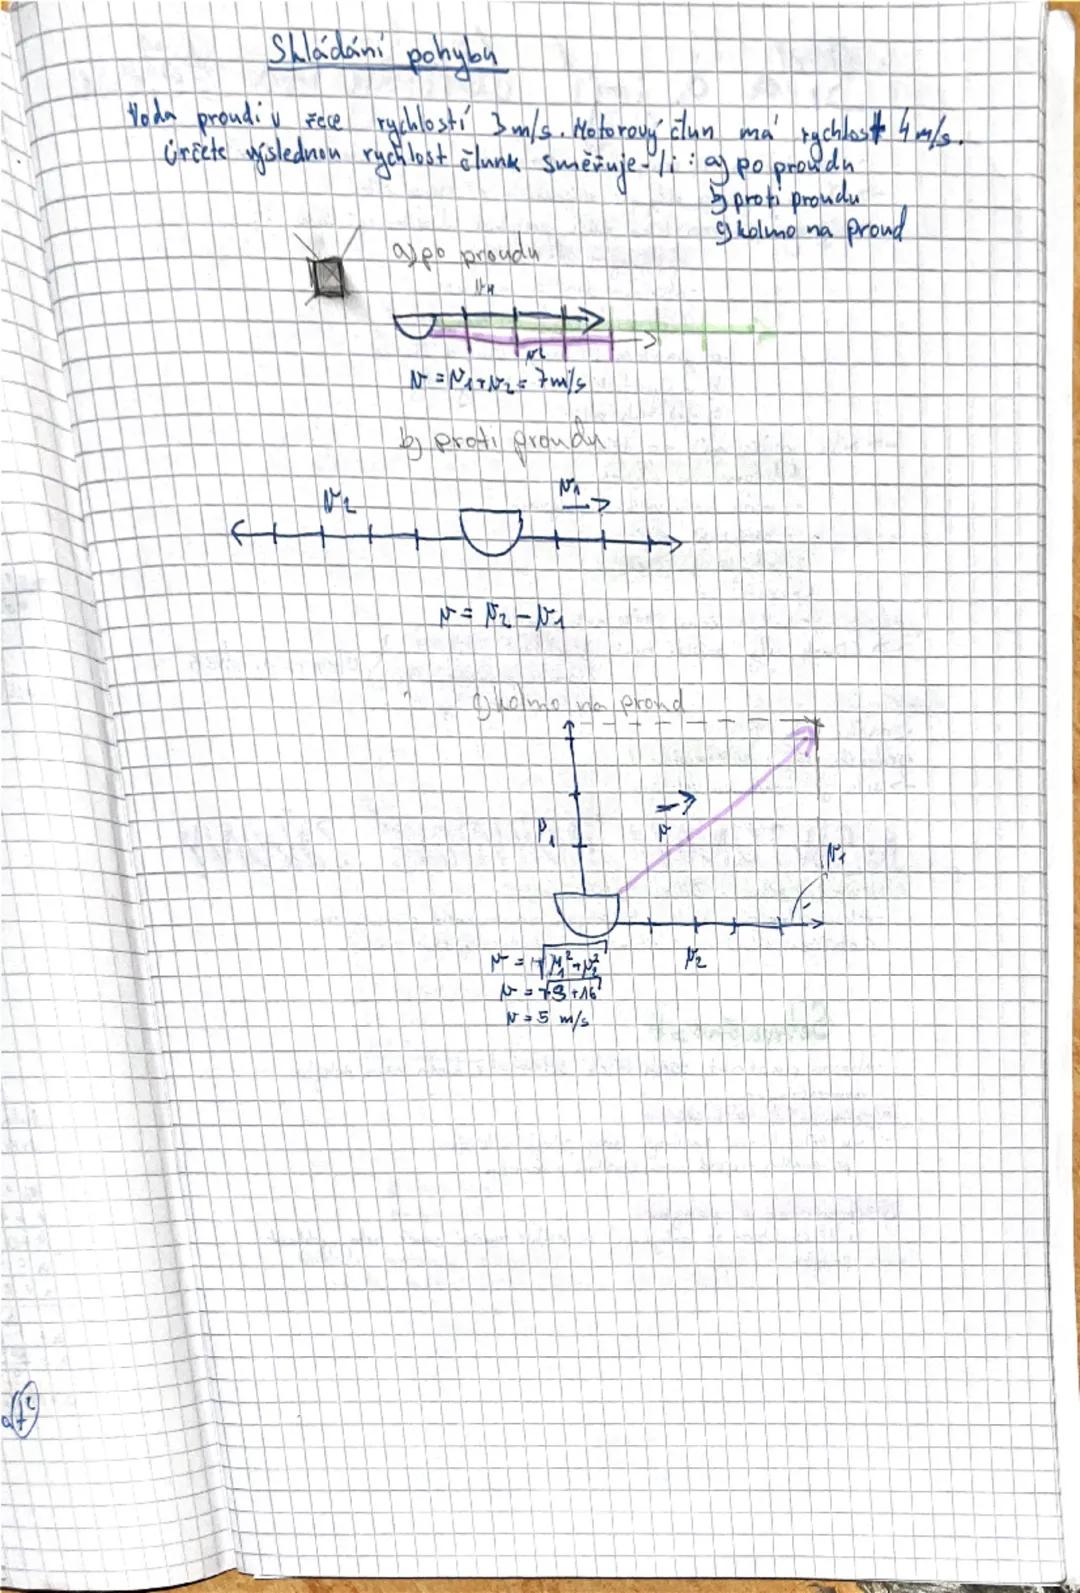 Skládání pohybu
Voda proudí v řece rychlostí 3 m/s. Motorový člun má rychlost 4 m/s.
Určete výslednou rychlost člunu směřuje-li : a) po proudu
b) proti proudu
c) kolmo na proud
a) po proudu
v₂
v = v₁+v₂ = 7 m/s
b) proti proudu
v₂ v₁
v = v₂ - v₁
c) kolmo na proud
v
v₁
v₁
v = √v₁²+v₂² v₂
v = √9+16
v = 5 m/s